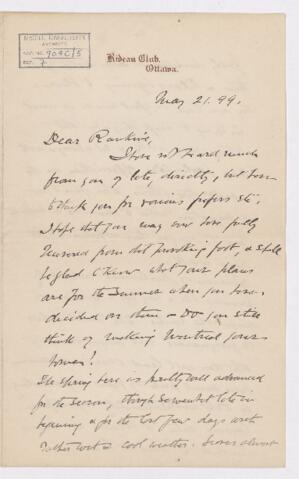 McGILL UNIVERSITY
ARCHIVES
ACC. NO. 909C/5
REF. 7
Rideau Club,
Ottawa.
May 21. 99.
Dear Rankine,
I have not heard much
from you of late, directly, but have
to thank you for various papers etc.
I hope that you may now have fully
recovered from that foot, & shall
be glad to know what your plans
are for the Summer when you have
decided on them — Do you still
think of making Montreal your
home?
The spring here is pretty well advanced
for the season, though somewhat late in
beginning & for the last few days with
rather wet & cool weather. almost